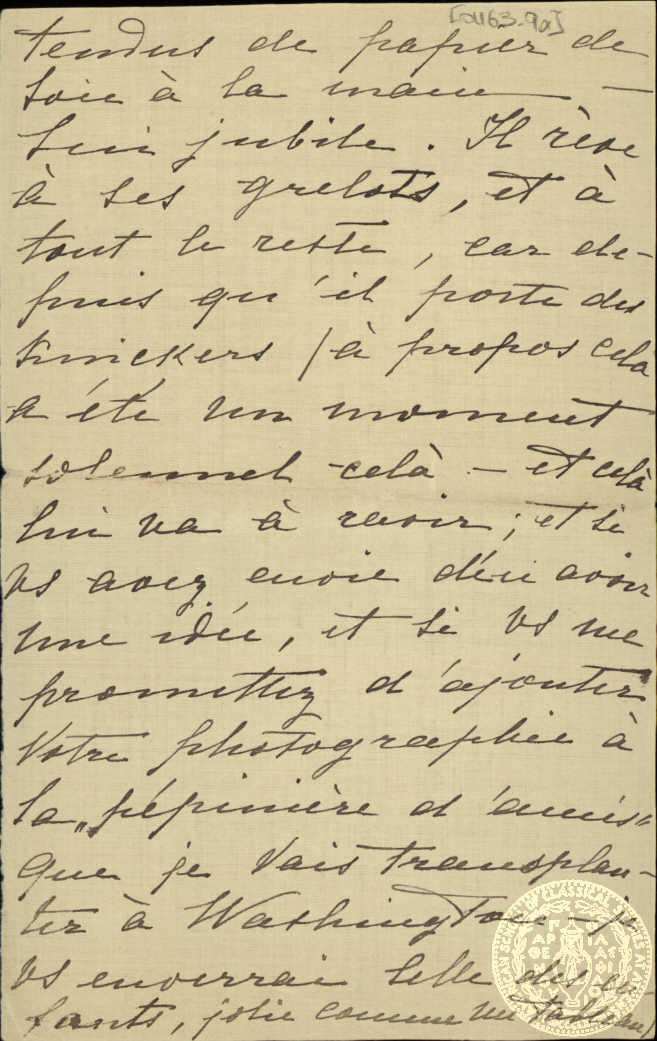 [01163.90]
tendus de papier de
soie à la main —
Lui jubile. Il rêve
à ses grelots, et à
tout le reste, car de-
puis qu'il porte des
knickers (à propos celà
a été un moment
solennel celà — et celà
lui va à ravir; et si
vs avez envie d'en avoir
une idée, et si vs me
promettez d'ajouter
Votre photographie à
la „pépinière d'amis"
que je vais transplan-
ter à Washington — je
vs enverrai celle des en-
fants, jolie comme un tableau)